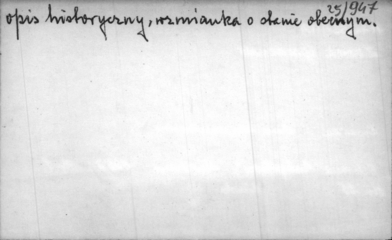 25/947
opis historyczny, wzmianka o stanie obecnym.